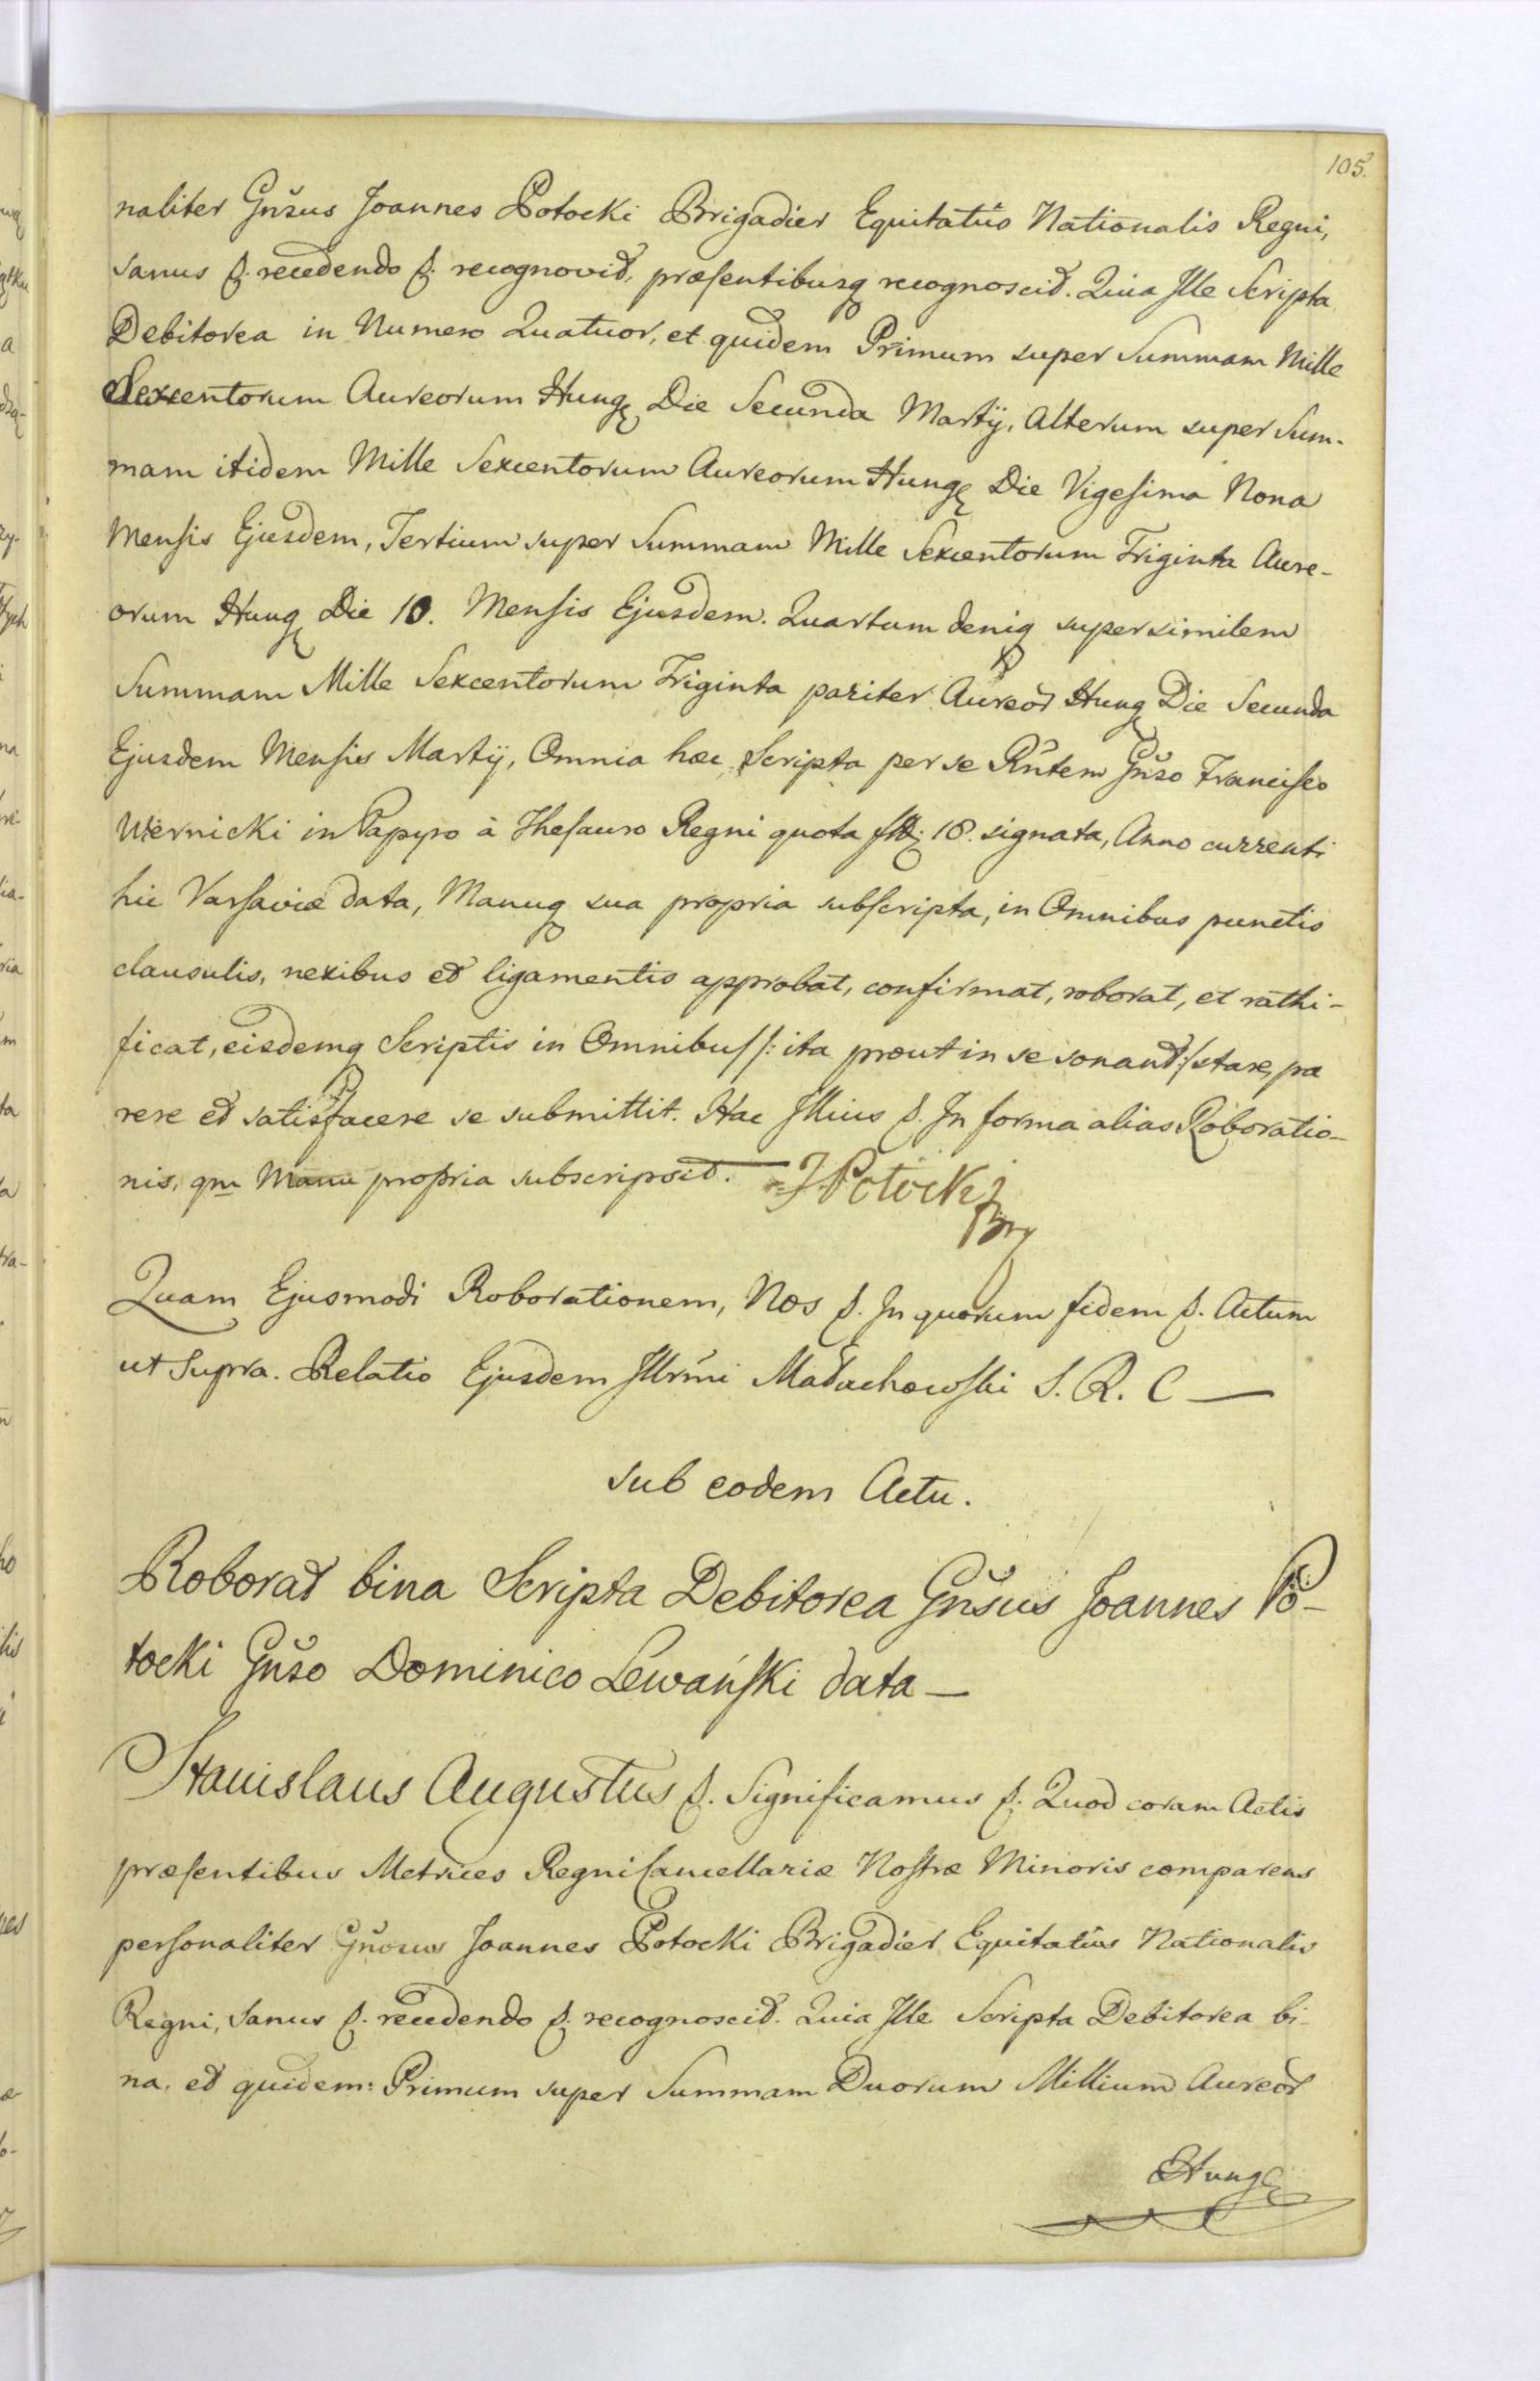 105.
naliter Gnsus Joannes Potocki Brigadier Equitatûs Nationalis Regni,
sanus p. recedendo p. recognovit, præsentibusq recognoscit. Quia Ille Scripta
Debitorea in Numero Quatuor, et quidem Primum super Summam Mille
Sexcentorum Aureorum Hung Die Secunda Martÿ, Alterum super Sum-
mam itidem Mille Sexcentorum Aureorum Hung Die Vigesima Nona
Mensis Ejusdem, Tertium super Summam Mille Sexcentorum Triginta Aure-
orum Hung Die 10. Mensis Ejusdem. Quartum deniq super similem
Summam Mille Sexcentorum Triginta pariter Aureor Hung Die Secunda
Ejusdem Mensis Martÿ, Omnia hæc Scripta per se Rntem Gnso Francisco
Wiernicki in Papyro à Thesauro Regni quota 18. signata, Anno currenti
hic Varsaviæ data, Manuq sua propria subscripta, in Omnibus punctis
clausulis, nexibus et ligamentis approbat, confirmat, roborat, et rathi-
ficat, eisdemq Scriptis in Omnibus /: ita prout in se sonant :/ stare, pa
rere et satisfacere se submittit. Hac Illius p. In forma alias Roboratio-
nis, qm Manu propria subscripsit. J Potocki
Bry
Quam Ejusmodi Roborationem, Nos p. In quorum fidem p. Actum
ut Supra. Relatio Ejusdem Illrmi Małachowski S. R. C —
sub eodem Actu.
Roborat bina Scripta Debitorea Gnsus Joannes Po-
tocki Gnso Dominico Lewański data —
Stanislaus Augustus p. Significamus p. Quod coram Actis
præsentibus Metrices Regni Cancellariæ Nostræ Minoris comparens
personaliter Gnosus Joannes Potocki Brigadier Equitatûs Nationalis
Regni, sanus p. recedendo p. recognoscit. Quia Ille Scripta Debitorea bi-
na, et quidem: Primum super Summam Duorum Millium Aureor
Hung